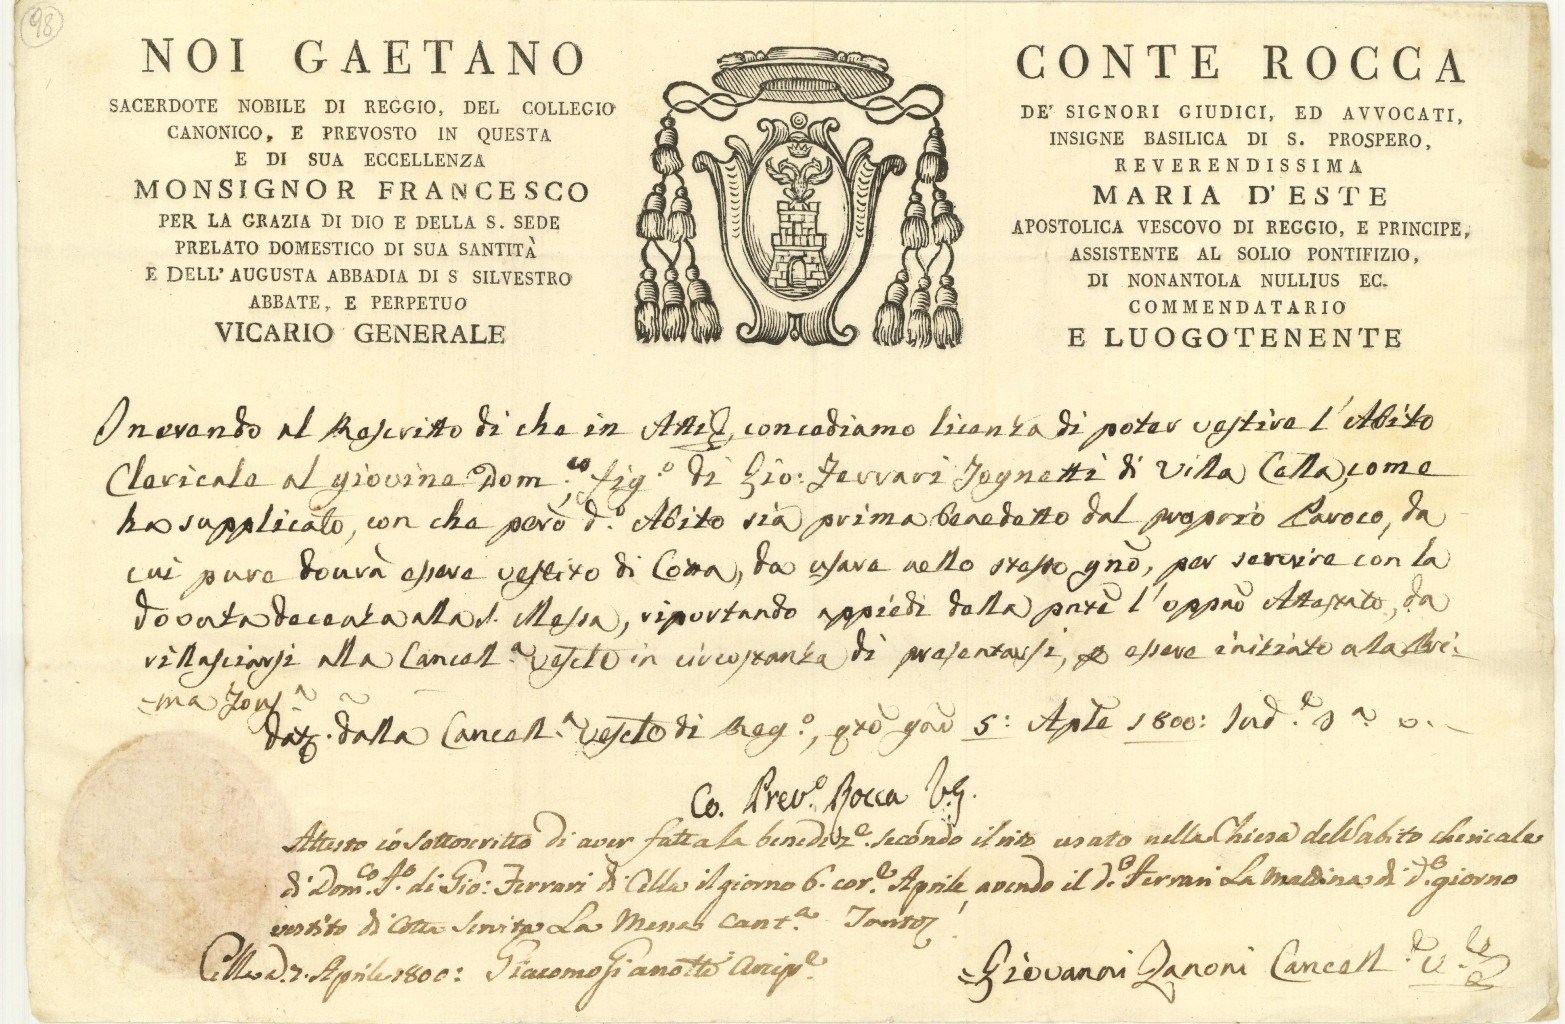 98
NOI GAETANO CONTE ROCCA
SACERDOTE NOBILE DI REGGIO, DEL COLLEGIO DE' SIGNORI GIUDICI, ED AVVOCATI,
CANONICO, E PREVOSTO IN QUESTA INSIGNE BASILICA DI S. PROSPERO,
E DI SUA ECCELLENZA REVERENDISSIMA
MONSIGNOR FRANCESCO MARIA D'ESTE
PER LA GRAZIA DI DIO E DELLA S. SEDE APOSTOLICA VESCOVO DI REGGIO, E PRINCIPE,
PRELATO DOMESTICO DI SUA SANTITÀ ASSISTENTE AL SOLIO PONTIFIZIO,
E DELL' AUGUSTA ABBADIA DI S SILVESTRO DI NONANTOLA NULLIUS EC.
ABBATE, E PERPETUO COMMENDATARIO
VICARIO GENERALE E LUOGOTENENTE
Inerendo al Rescritto di che in Atti, concediamo licenza di poter vestire l'Abito
Clericale al giovine Dom.co fig.o di Gio: Ferrari Tognetti di Villa Cella, come
ha supplicato, con che però d.o Abito sia prima benedetto dal proprio Paroco, da
cui pure dovrà essere vestito di Cotta, da usare nello stesso gnō, per servire con la
dovuta decenza alla S. Messa, riportando appiedi della pnte l'oppnō Attestato, da
rillasciarsi alla Cancell.a Vescle in circostanza di presentarsi, p essere iniziato alla Pri-
-ma Tons.a
Dat. dalla Cancell.a Vescle di Reg.o, qto gnō 5: Aple 1800: Ind.e 3.a
Co. Prev.o Rocca V.G.
Attesto io sottoscritto di aver fatta la benediz.e secondo il rito usato nella Chiesa dell'abito chericale
di Dom.co F.o di Gio: Ferrari di Cella il giorno 6. cor.e Aprile, avendo il d.o Ferrari La mattina di d.o giorno
vestito di Cotta Servita La Messa Cant.a
Cella d. 7. Aprile 1800: Giacomo Gianotti Arcip.e
Giovanni Zanoni Cancell.e V.le